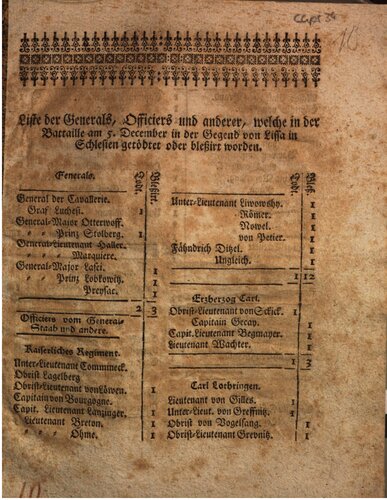 Liste der Generals, Officiers und anderer, welche in der
Battaille am 5. December in der Gegend von Lissa in
Schlesien getödtet oder bleßirt worden.
Generals.
Todt.
Bleßirt.
General der Cavallerie.
Graf Luchesi. 1
General-Major Otterwolff.
" " Prinz Stolberg. 1
General-Lieutenant Haller.
" " Marquiere. 1
General-Major Lasci. 1
" " Prinz Lobkowitz. 1
Preysac. 1
2 3
Officiers vom General-
Staab und andere.
Kaiserliches Regiment.
Unter-Lieutenant Commmeck.
Obrist Lagelberg 1
Obrist-Lieutenant von Löwen. 1
Capitain von Bourgogne. 1
Capit. Lieutenant Lanzinger. 1
Lieutenant Breton. 1
" " Ohme. 1
Todt.
Bleß.
Unter-Lieutenant Liwowsky. 1
Römer. 1
Nowel. 1
von Petier. 1
Fähndrich Ditzel. 1
Ungleich. 1
1 12
Erzherzog Carl.
Obrist-Lieutenant von Sckick. 1
Capitain Grcay. 1
Capit. Lieutenant Begmayer. 1
Lieutenant Wachter. 1
1 3
Carl Lothringen.
Lieutenant von Gilles. 1
Unter-Lieut. von Greffnitz. 1
Obrist von Vogelsang. 1
Obrist-Lieutenant Grevnitz. 1